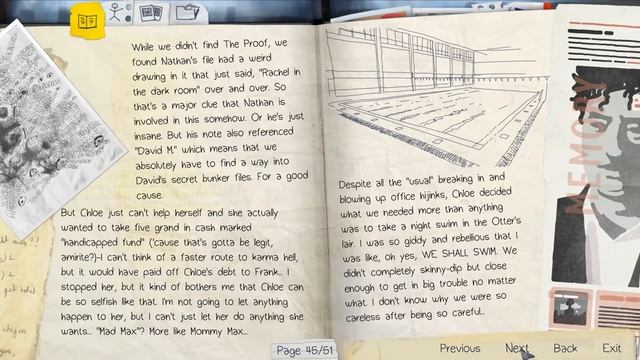 While we didn't find The Proof, we
found Nathan's file had a weird
drawing in it that just said, "Rachel in
the dark room" over and over. So
that's a major clue that Nathan is
involved in this somehow. Or he's just
insane. But his note also referenced
"David M." which means that we
absolutely have to find a way into
David's secret bunker files. For a good
cause.
But Chloe just can't help herself and she actually
wanted to take five grand in cash marked
"handicapped fund" ('cause that's gotta be legit,
amirite?)-I can't think of a faster route to karma hell,
but it would have paid off Chloe's debt to Frank... I
stopped her, but it kind of bothers me that Chloe can
be so selfish like that. I'm not going to let anything
happen to her, but I can't just let her do anything she
wants... "Mad Max"? More like Mommy Max...
Despite all the "usual" breaking in and
blowing up office hijinks, Chloe decided
what we needed more than anything
was to take a night swim in the Otter's
lair. I was so giddy and rebellious that I
was like, oh yes, WE SHALL SWIM. We
didn't completely skinny-dip but close
enough to get in big trouble no matter
what. I don't know why we were so
careless after being so careful...
MEMORY
Page 45/51
Previous
Next
Back
Exit